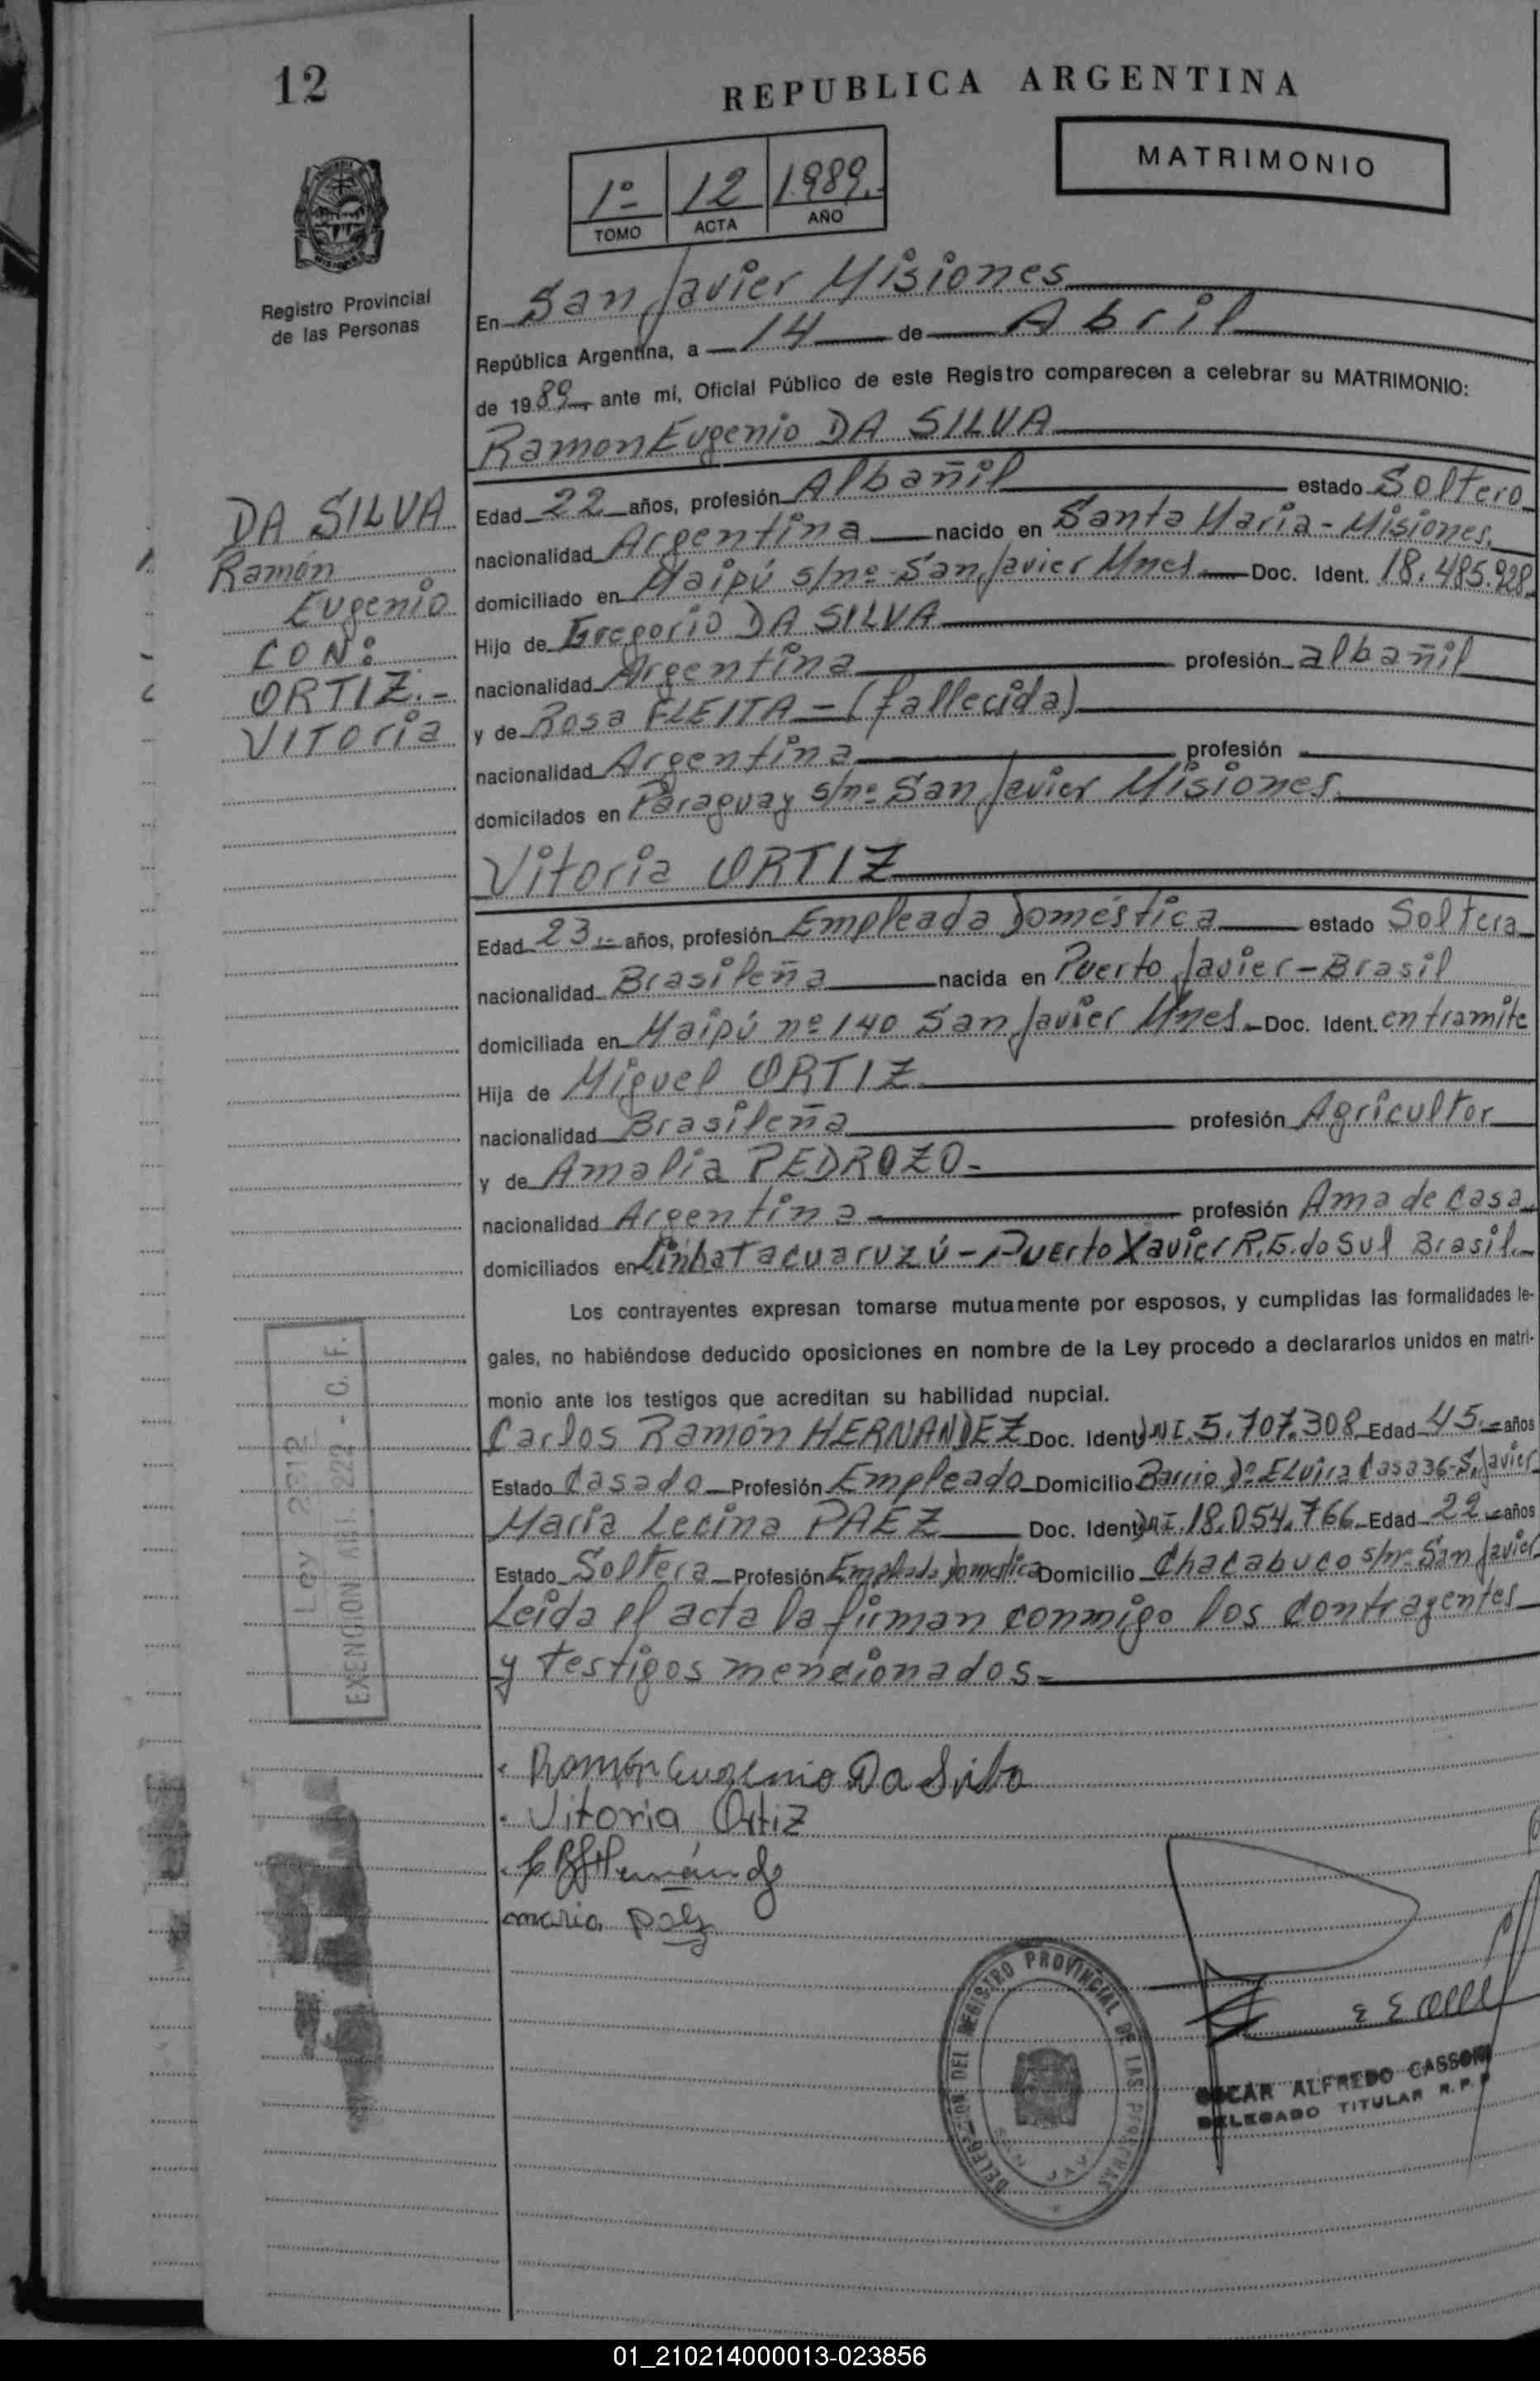 12
REPUBLICA ARGENTINA
MATRIMONIO
1º 12 1989.-
TOMO ACTA AÑO
Registro Provincial
de las Personas
En San Javier Misiones
República Argentina, a 14 de Abril
de 1989, ante mí, Oficial Público de este Registro comparecen a celebrar su MATRIMONIO:
Ramon Eugenio DA SILVA
DA SILVA
Ramón
Eugenio
CON:
ORTIZ.-
VITOria
Edad 22 años, profesión Albañil estado Soltero
nacionalidad Argentina nacido en Santa Maria - Misiones.
domiciliado en Maipú s/nº San Javier Mnes. Doc. Ident. 18.485.928
Hijo de Gregorio DA SILVA
nacionalidad Argentina profesión albañil
y de Rosa FLEITA - (fallecida)
nacionalidad Argentina profesión
domicilados en Paraguay s/nº San Javier Misiones.
Vitoria ORTIZ
Edad 23.- años, profesión Empleada Doméstica estado Soltera
nacionalidad Brasileña nacida en Puerto Javier - Brasil
domiciliada en Maipú nº 140 San Javier Mnes. Doc. Ident. en tramite
Hija de Miguel ORTIZ
nacionalidad Brasileña profesión Agricultor
y de Amalia PEDROZO.-
nacionalidad Argentina profesión Ama de Casa
domiciliados en Linha Tacuaruzú - Puerto Xavier R.G. do Sul Brasil.-
Los contrayentes expresan tomarse mutuamente por esposos, y cumplidas las formalidades le-
gales, no habiéndose deducido oposiciones en nombre de la Ley procedo a declararlos unidos en matri-
monio ante los testigos que acreditan su habilidad nupcial.
Carlos Ramón HERNANDEZ Doc. Ident. DNI. 5.707.308 Edad 45.- años
Estado Casado Profesión Empleado Domicilio Barrio Dº Elvira Casa 36-S. Javier
María Lecina PAEZ Doc. Ident. DNI. 18.054.766 Edad 22 años
Estado Soltera Profesión Empleada Domestica Domicilio Chacabuco s/nº San Javier
Leida el acta la firman conmigo los contrayentes
y testigos mencionados.-
Ley 2312
EXENCION Art. 222 - C. F.
Ramón Eugenio Da Silva
Vitoria Ortiz
Hernández
maria paez
DELEGACION DEL REGISTRO PROVINCIAL DE LAS PERSONAS
SAN JAVIER
OSCAR ALFREDO CASSONI
DELEGADO TITULAR R. P. P
01_210214000013-023856